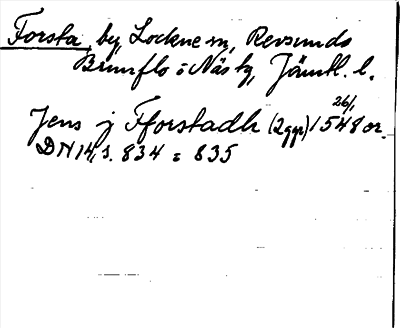 Forsta, by, Lockne sn, Revsunds
Brunflo o Näs tg, Jämtl. l.
26/1
Jens j Fforstadh (2 ggr) 1548 or.
DN 14, s. 834 o 835